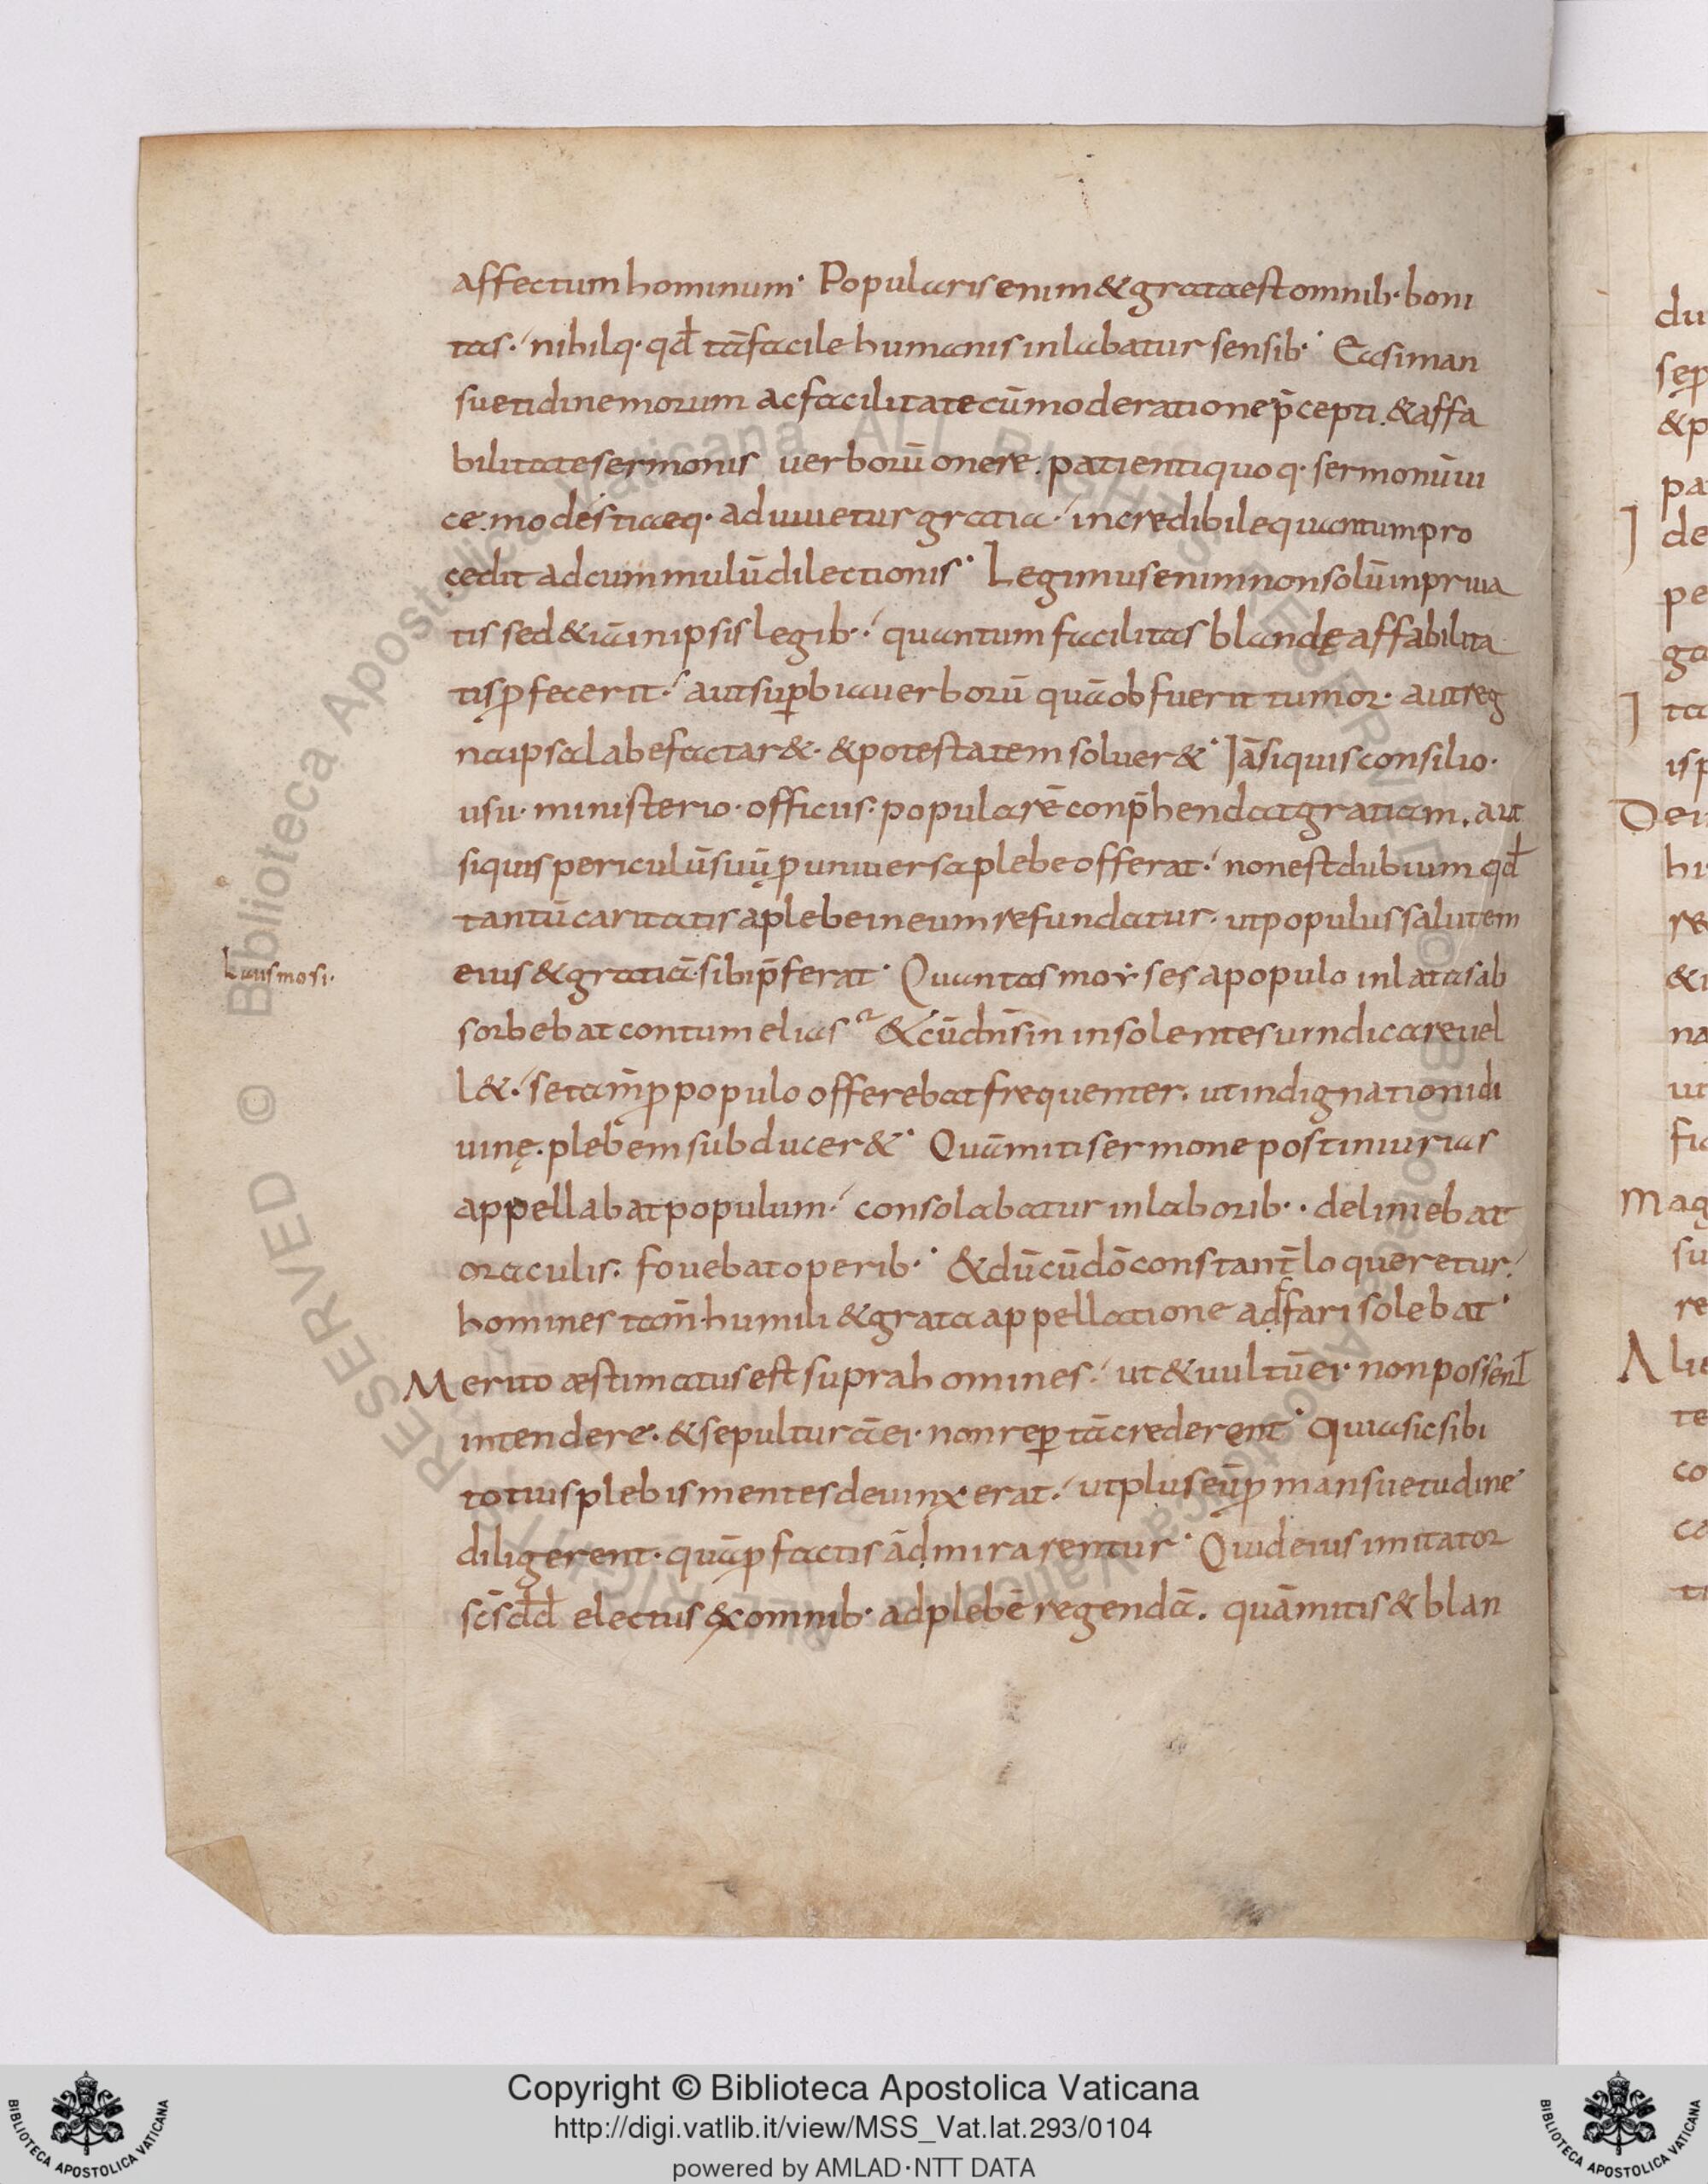 affectum hominum· Popularis enim & grata est omnib· boni
tas· nihilq· qđ tā facile humanis inlabatur sensib·· Ea si man
suetidine morum ac facilitate cū moderatione p̄cepti. & affa
bilitate sermonis uerborū onere. patientiquoq· sermonū ui
ce. modestiaeq· adiuuetur gratia· incredibile quantum pro
cedit ad cummulū dilectionis· Legimus enim non solū in priua
tis sed & iā in ipsis legib·· quantum facilitas blandę affabilita
tis ꝓfecerit· aut suꝑbia uerborū quā obfuerit tumor· aut reg
na ipsa labefactar&· & potestatem soluer&· Iā siquis consilio·
usu· ministerio· officiis· popularē conp̄hendat gratiam. aut
siquis periculū suū ꝓ uniuersa plebe offerat· non est dubium qđ
tantū caritatis a plebe in eum refundatur· ut populus salutem
eius & gratiā· sibi p̄ferat· Quantas moẏses a populo inlatas ab
laus mosi·
sorbebat contumelias & cū dn̄s in insolentes uindicare uel
l&· se tam̄ ꝓ populo offerebat frequenter· ut indignationi di
uinę· plebem subducer&· Quā miti sermone post iniurias
appellabat populum· consolabatur in laborib·· deliniebat
oraculis· fouebat operib·· & dū cū dō constant̄ loqueretur·
homines tam̄ humili & grata appellatione adfari solebat·
Merito æstimatus est supra homines· ut & uultū ei· non possent
intendere· & sepulturā ei· non reꝑtā crederent· Quia sic sibi
totius plebis mentes deuinxerat· ut plus eū ꝓ mansuetudine
diligerent· quā ꝓ factis admirarentur· Quid eius imitator
sc̄s dđ electus ex omnib· ad plebē regendā. quā mitis & blan
du
sęp
&p
pa
de
pe
ga
ta
is p
Dei
hi
r&
&i
na
ut
fic
mag
su
re
Alie
te
co
ca
ti
Copyright © Biblioteca Apostolica Vaticana
http://digi.vatlib.it/view/MSS_Vat.lat.293/0104
powered by AMLAD·NTT DATA
BIBLIOTECA APOSTOLICA VATICANA
BIBLIOTECA APOSTOLICA VATICANA